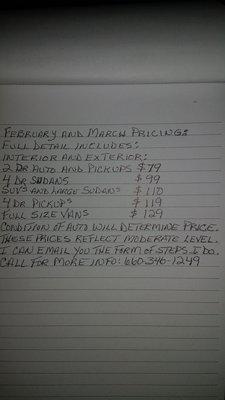 FEBRUARY AND MARCH PRICING:
FULL DETAIL INCLUDES:
INTERIOR AND EXTERIOR:
2 DR AUTO AND PICKUPS $79
4 DR SUDANS $99
SUVS AND LARGE SUDANS $110
4 DR PICKUPS $119
FULL SIZE VANS $129
CONDITION OF AUTO WILL DETERMINE PRICE.
THESE PRICES REFLECT MODERATE LEVEL.
I CAN EMAIL YOU THE FORM OF STEPS I DO.
CALL FOR MORE INFO: 660-346-1249